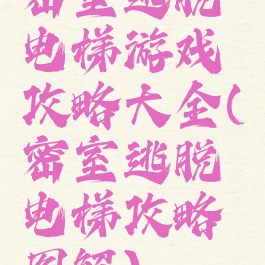 密室逃脱
电梯游戏
攻略大全(
密室逃脱
电梯攻略
图解)